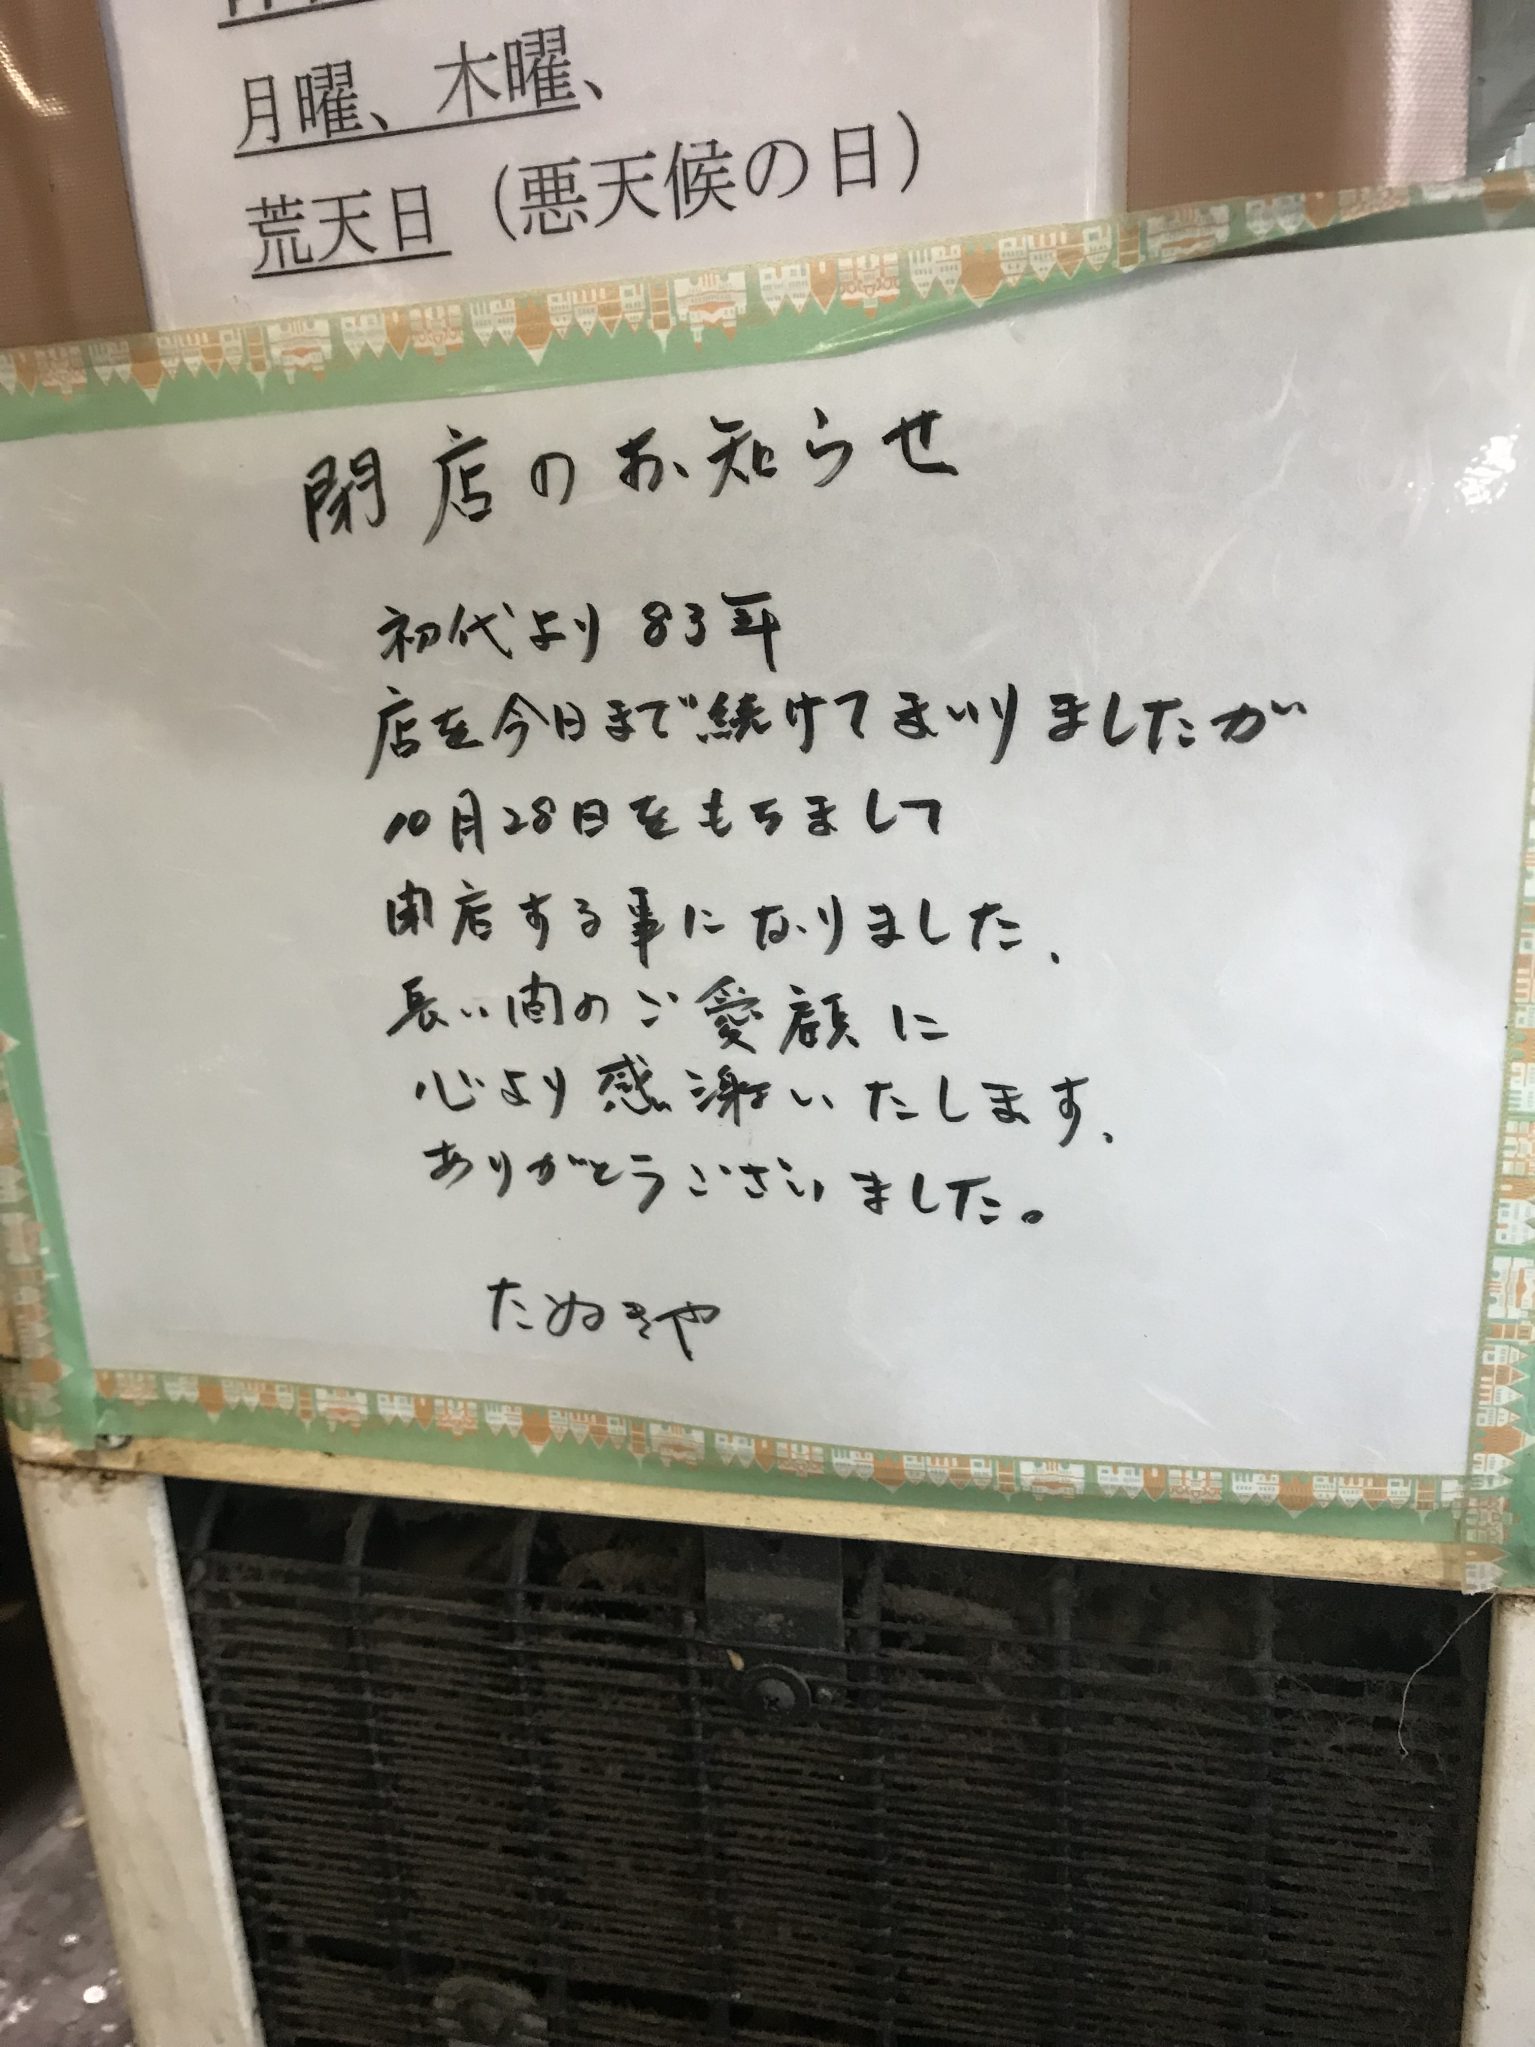 月曜、木曜、
荒天日（悪天候の日）
閉店のお知らせ
初代より83年
店を今日まで続けてまいりましたが
10月28日をもちまして
閉店する事になりました、
長い間のご愛顧に
心より感謝いたします、
ありがとうございました。
たぬきや